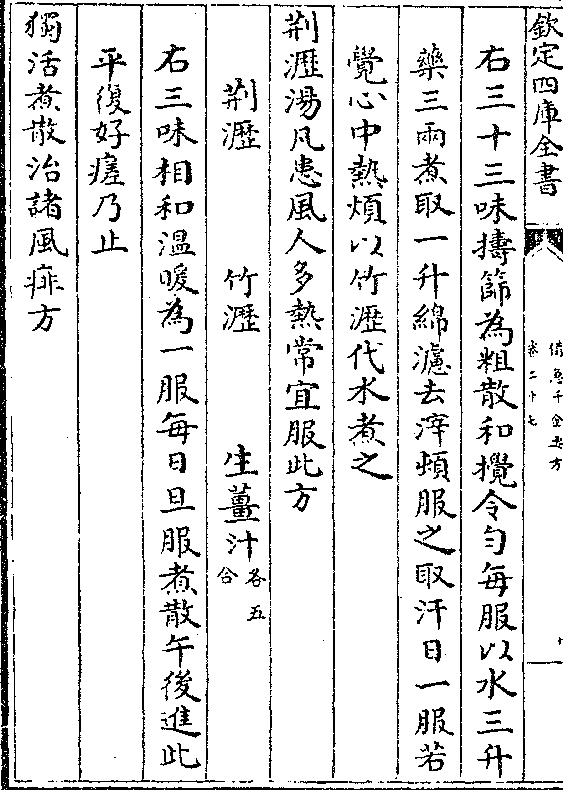 欽定四庫全書
備急千金要方
卷二十七
右三十三味擣篩為粗散和攪令勻每服以水三升
藥三兩煮取一升綿濾去滓頓服之取汗日一服若
覺心中熱煩以竹瀝代水煮之
荆瀝湯凡患風人多熱常宜服此方
荆瀝　竹瀝　生薑汁各五合
右三味相和温暖為一服每日旦服煮散午後進此
平復好瘥乃止
獨活煮散治諸風痱方